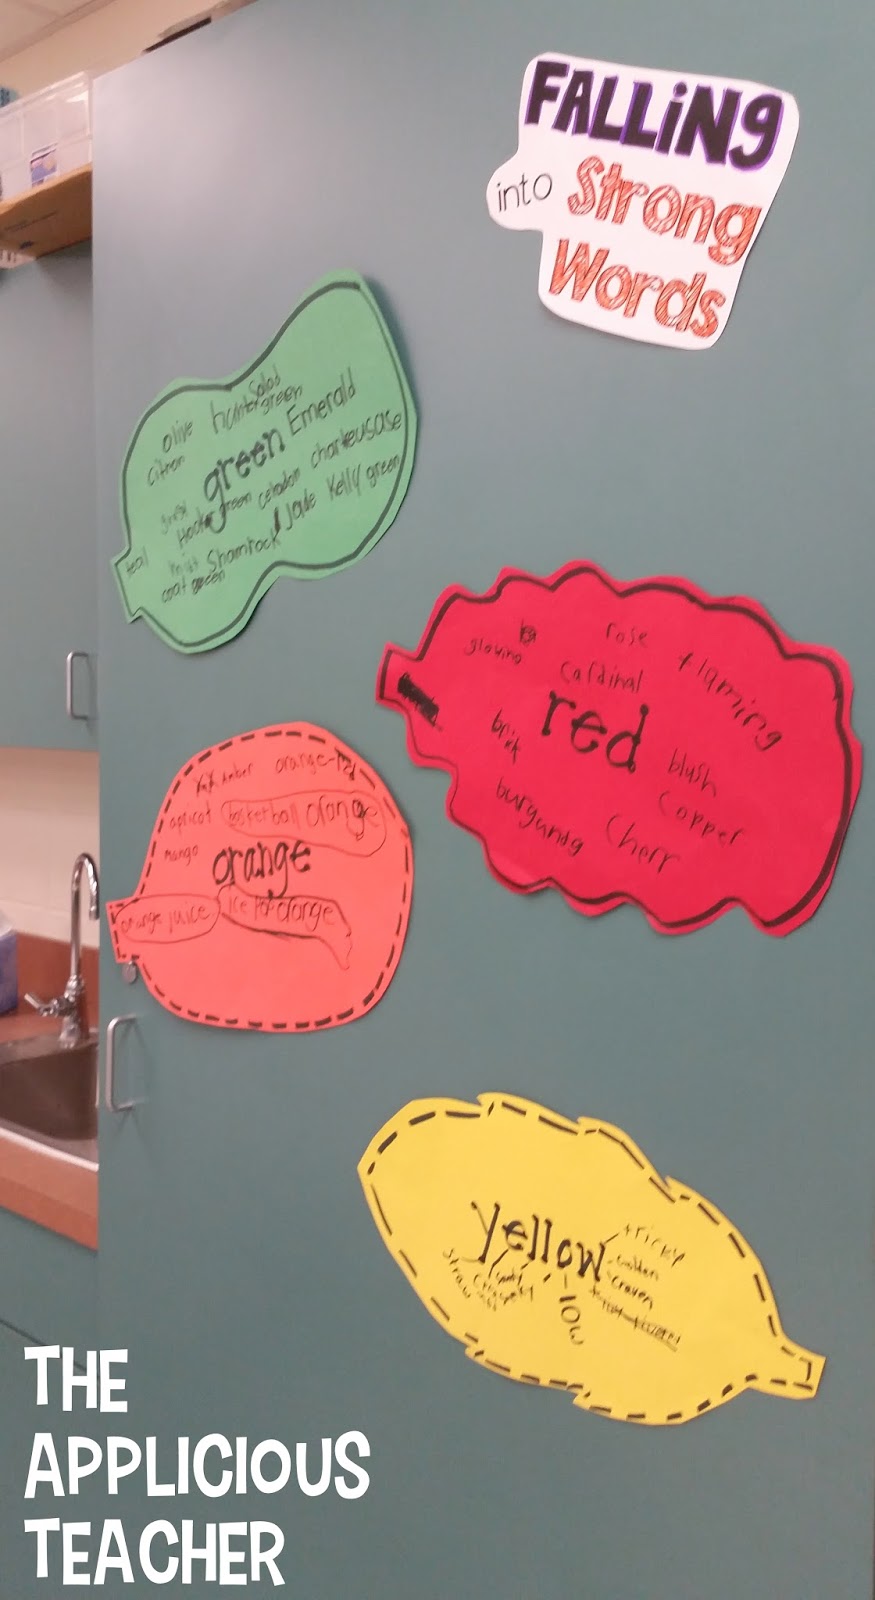 FALLING
into Strong
Words
olive hunter green
salad
citron green Emerald
charteusase
Hooker green celadon
Jade Kelly green
teal mist Shamrock
coat green
rose
glowing
flaming
cardinal
red
brik
blush
copper
burgundy
Cherr
Amber orange-red
apricot basketball orange
mango
orange
orange juice Ice pop orange
yellow
tricky
Golden
craven
low
straw
THE
APPLICIOUS
TEACHER